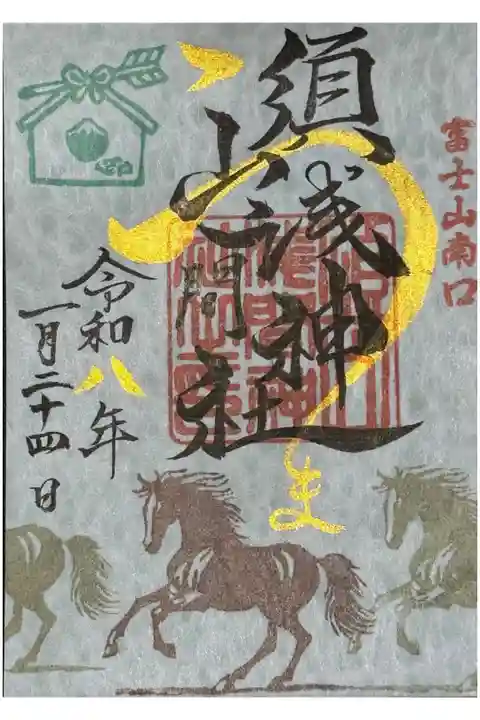 富士山南口
須山浅間神社
うま
令和八年
一月二十四日